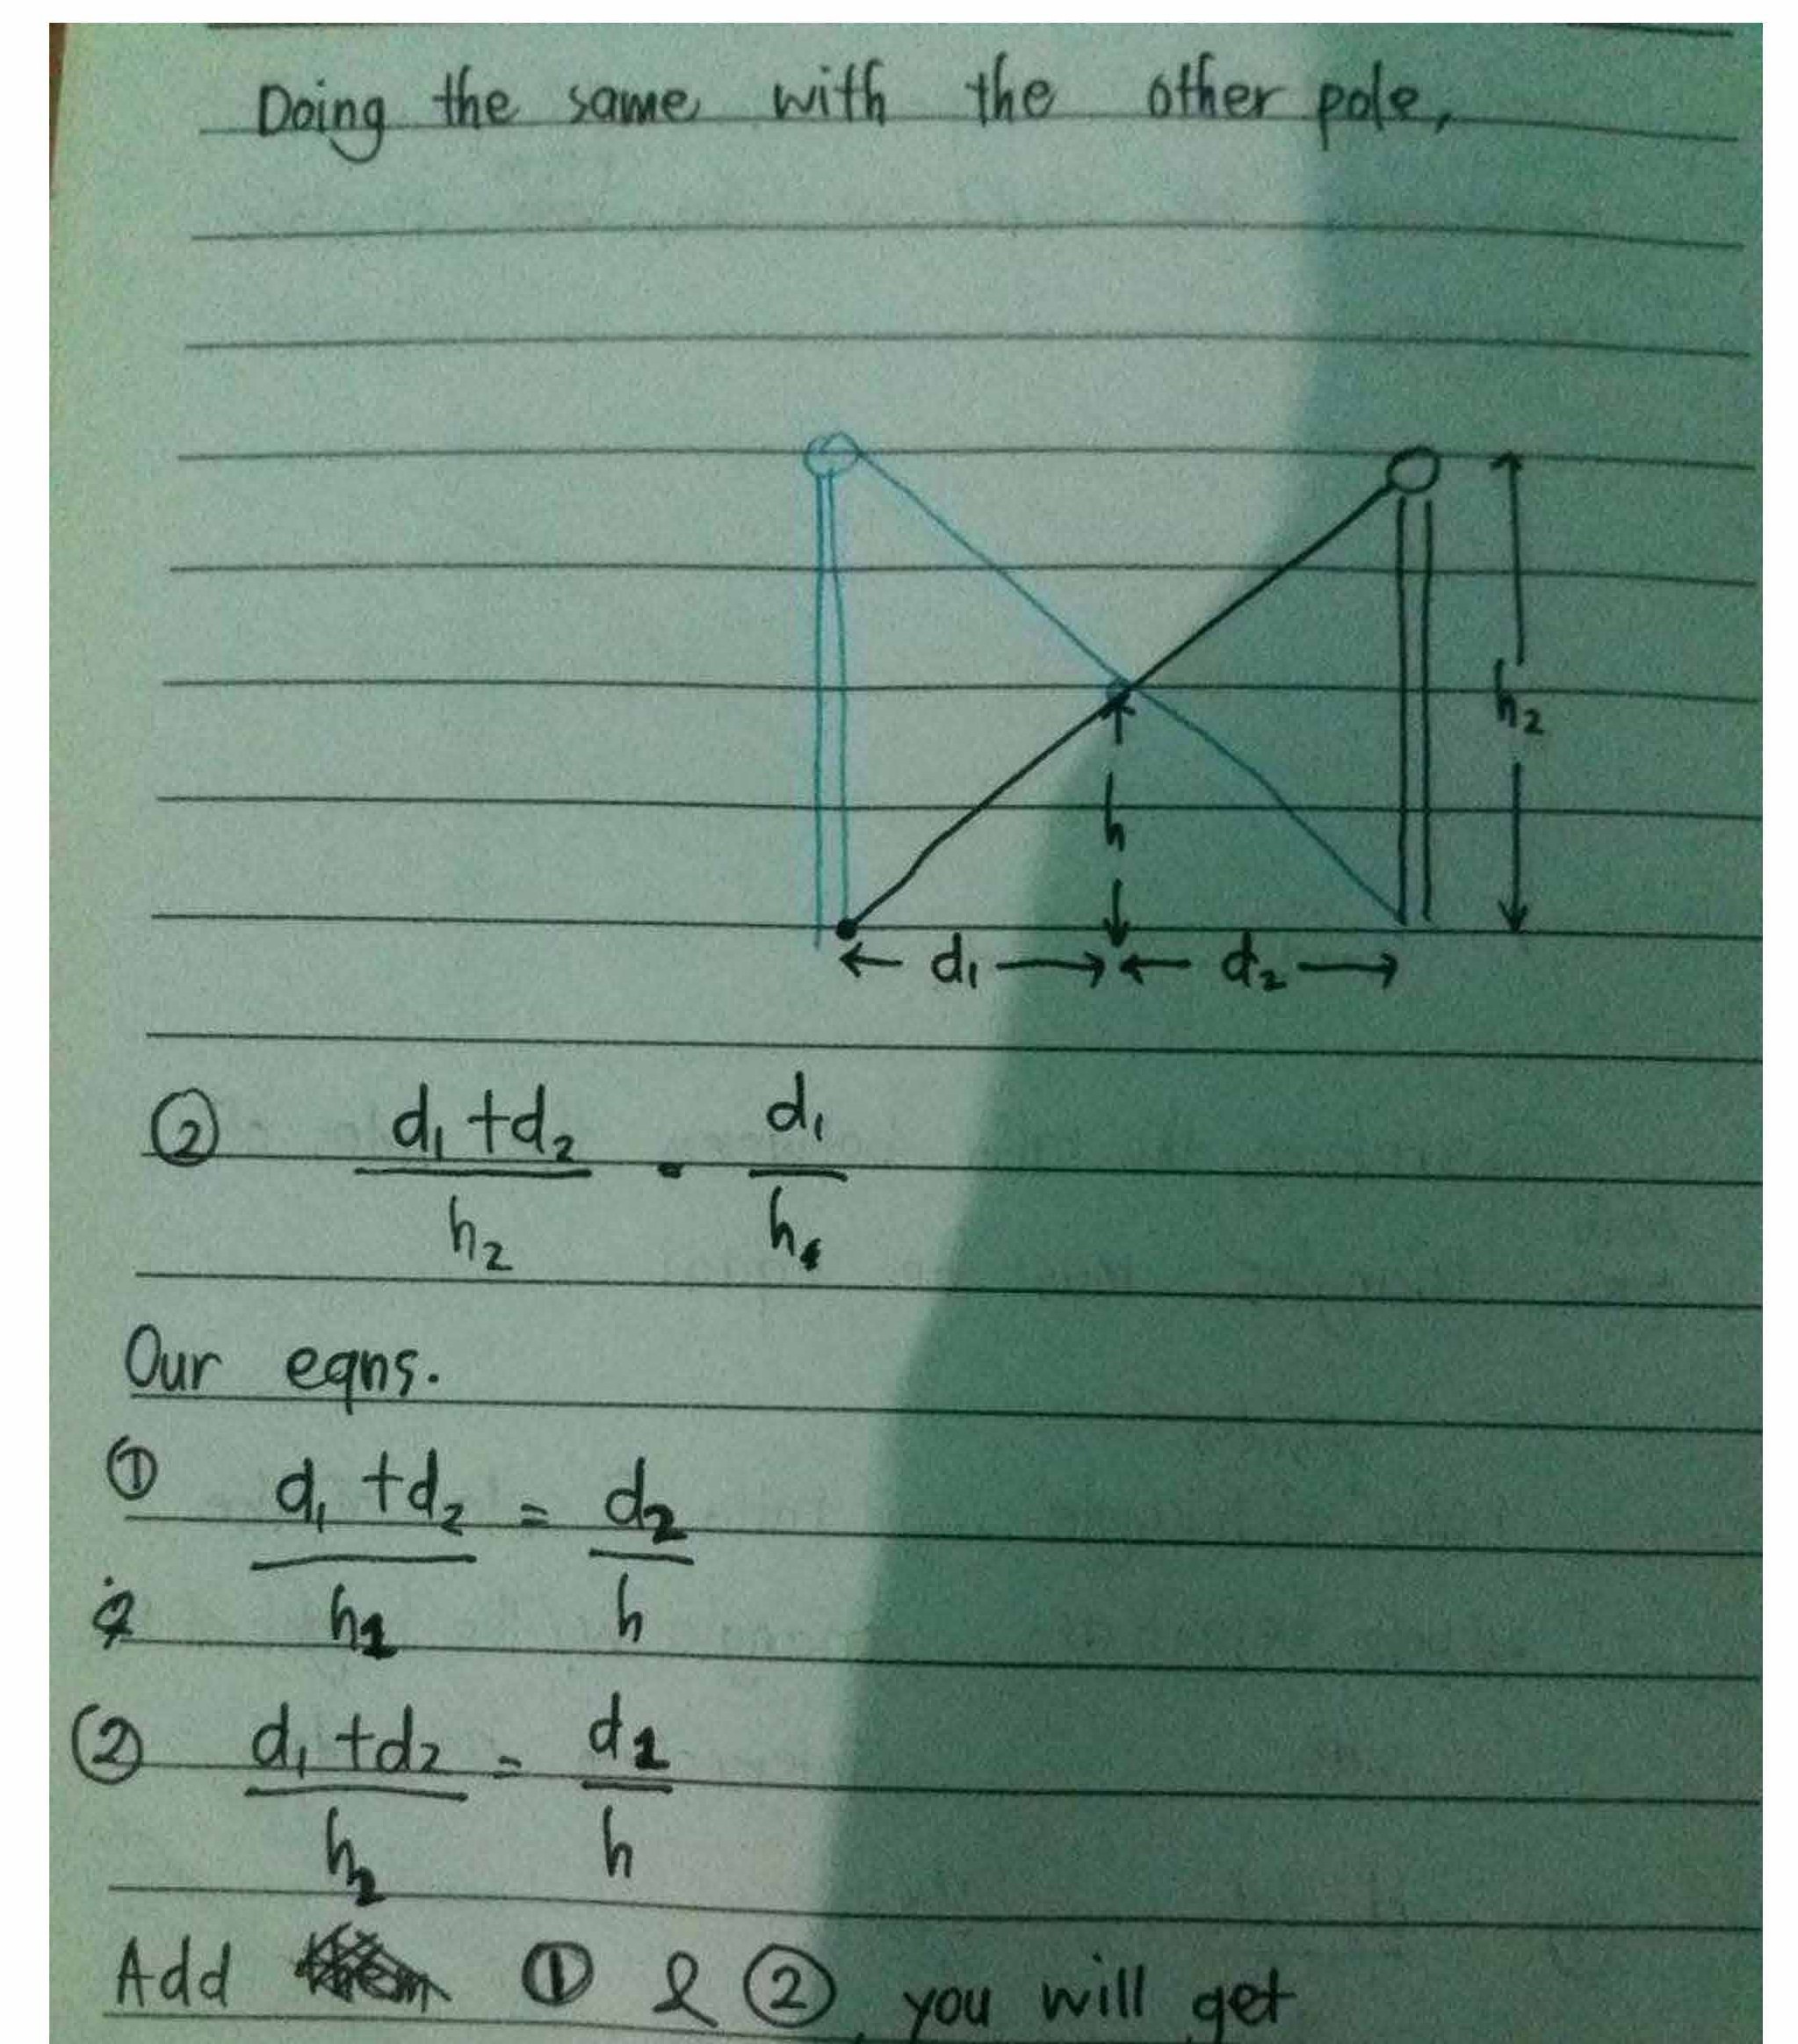 Doing the same with the other pole,
h₂
h
← d₁ → ← d₂ →
② (d₁ + d₂)/h₂ = d₁/h
Our eqns.
① (d₁ + d₂)/h₁ = d₂/h
② (d₁ + d₂)/h₂ = d₁/h
Add ① & ②, you will get